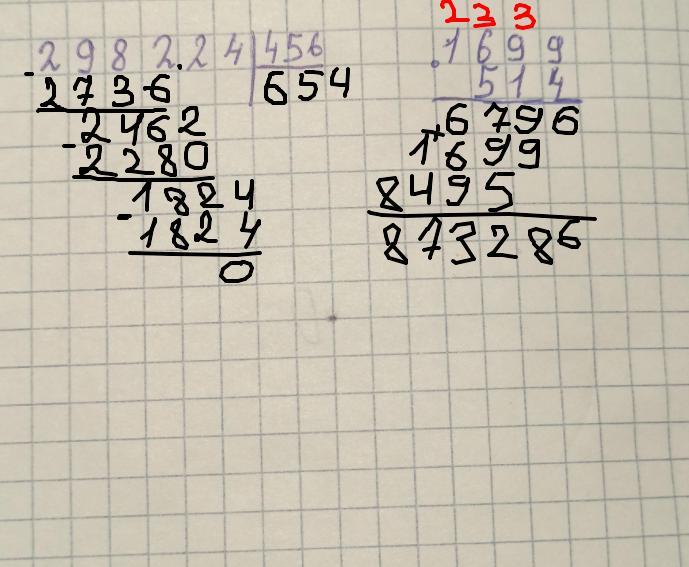 298224|456
-2736 654
2462
-2280
1824
-1824
0
2 3 3
.1699
514
6796
+1699
8495
873286